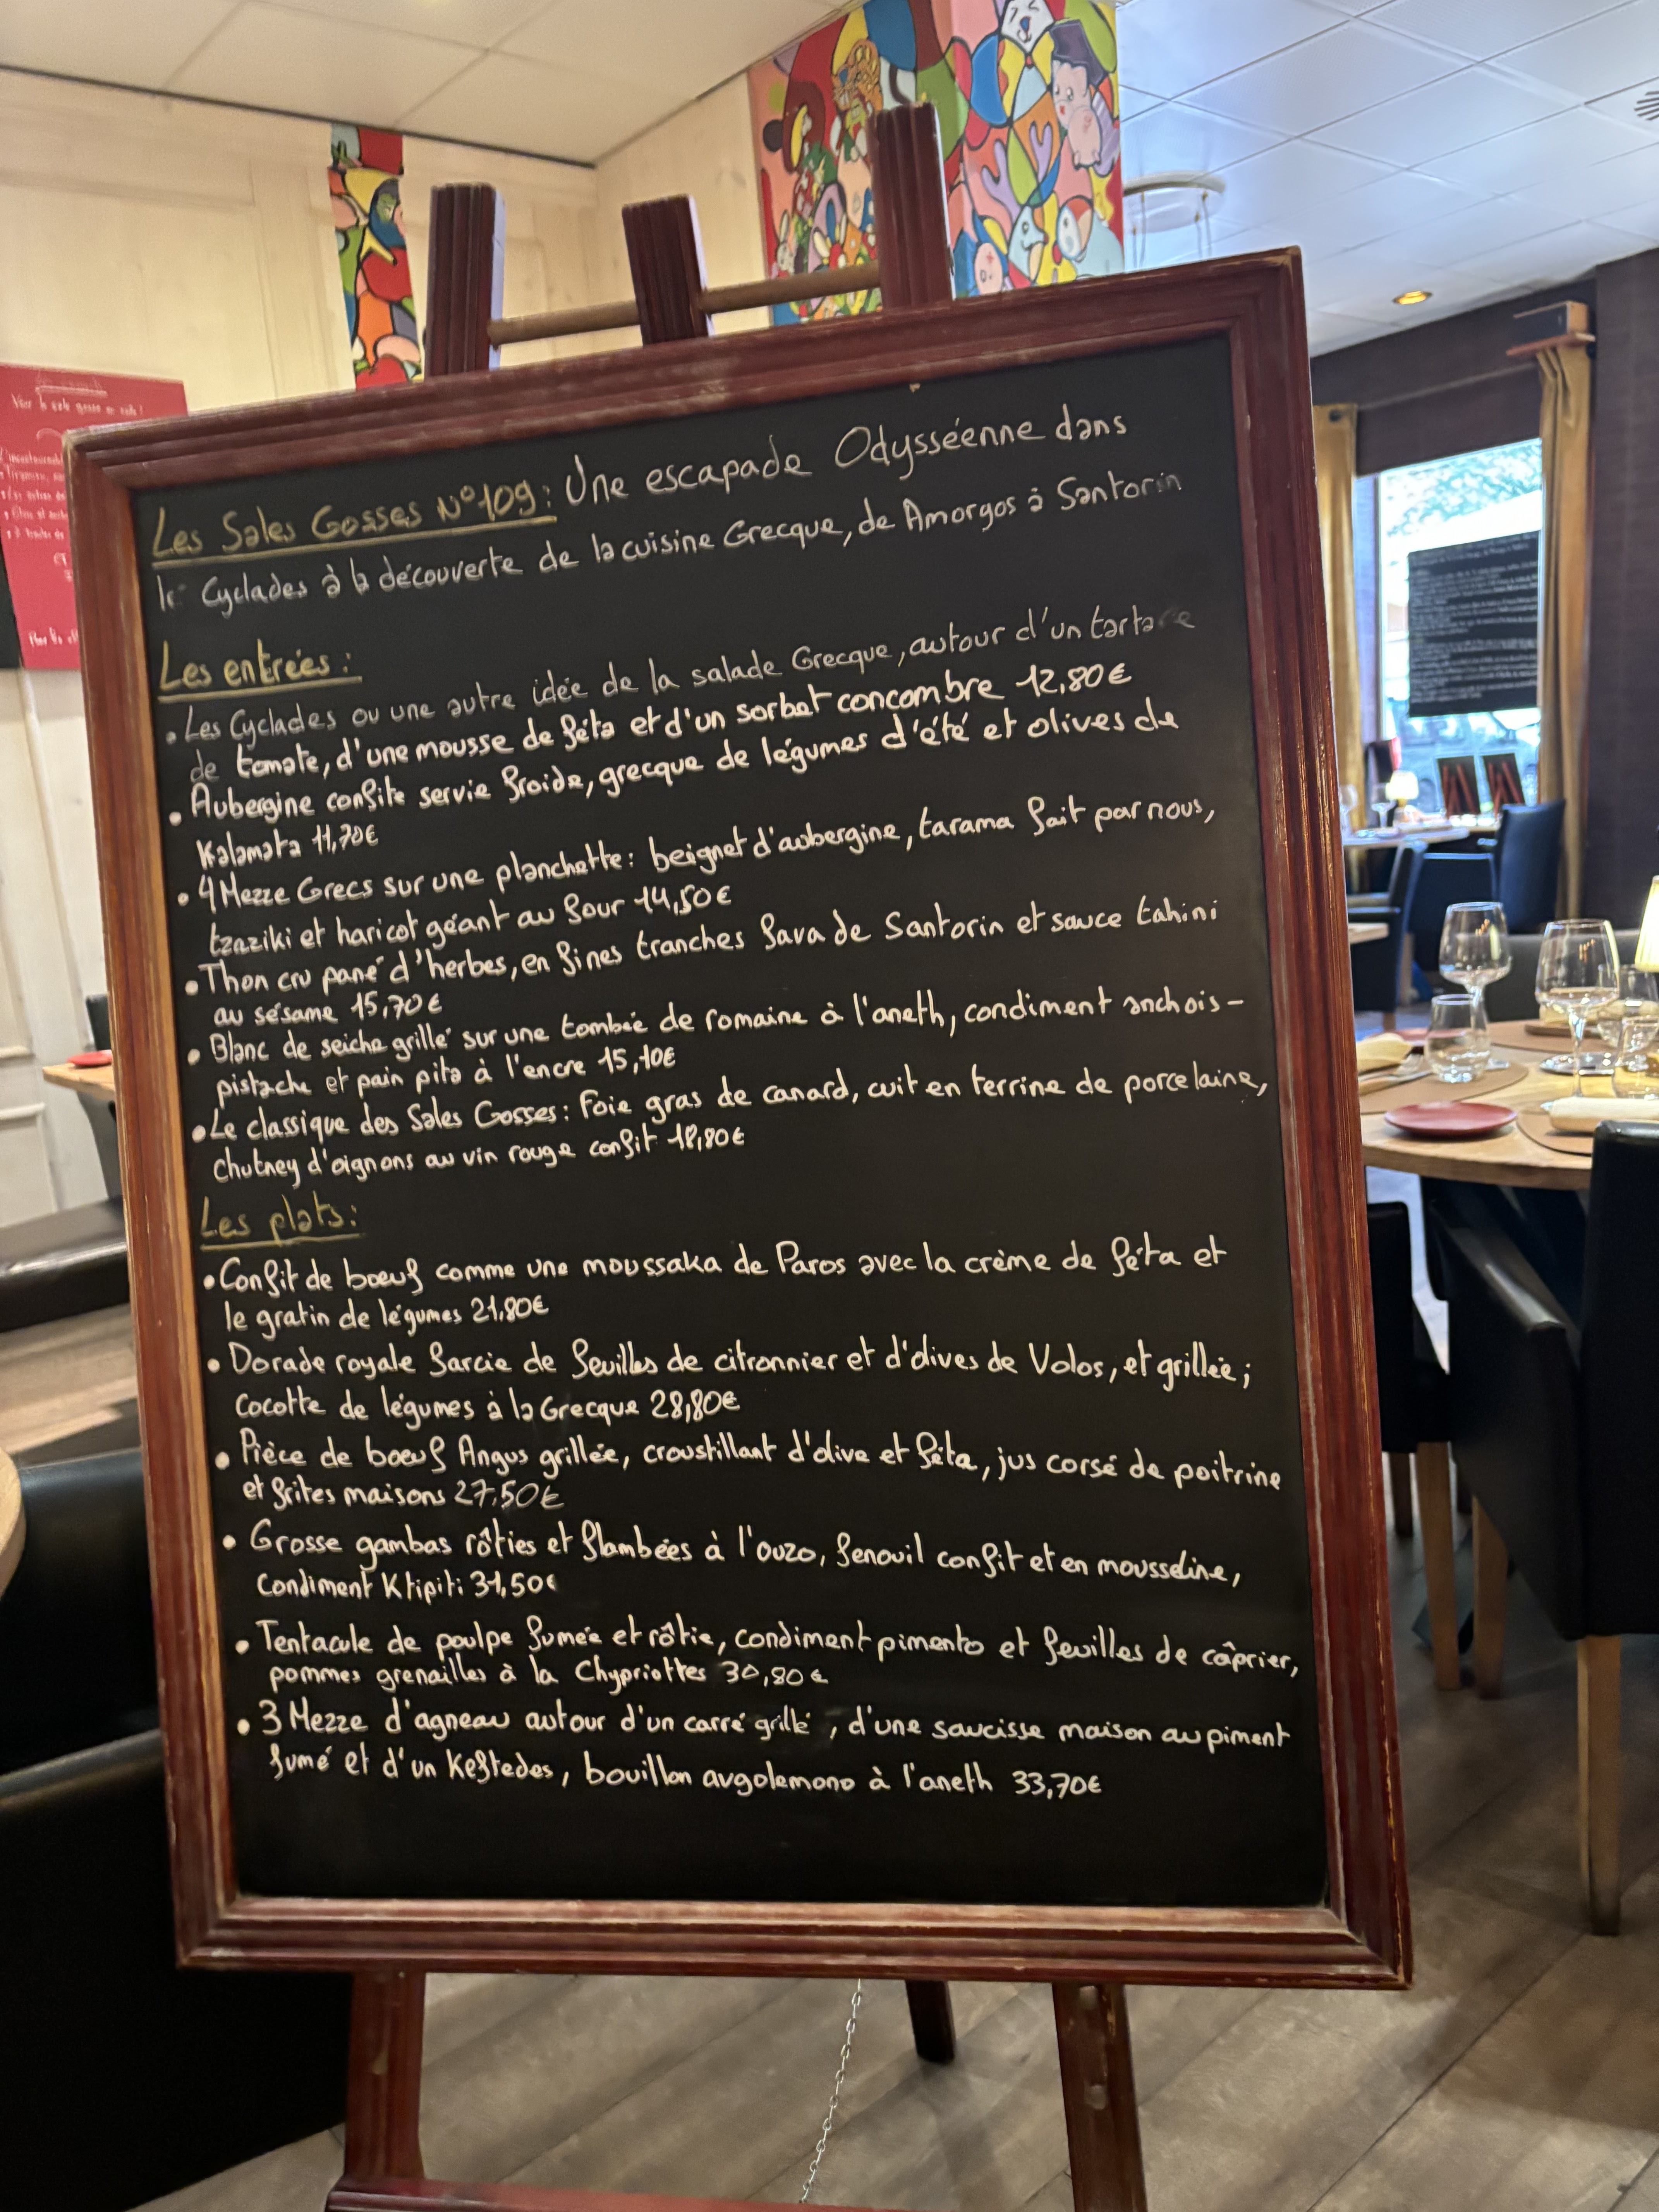 Les Sales Gosses N°109: Une escapade Odysséenne dans
Cyclades à la découverte de la cuisine Grecque, de Amorgos à Santorin
Les entrées:
• Les Cyclades ou une autre idée de la salade Grecque, autour d'un tartare
de tomate, d'une mousse de féta et d'un sorbet concombre 12,80€
• Aubergine confite servie froide, grecque de légumes d'été et olives de
Kalamata 11,70€
• 4 Mezze Grecs sur une planchette: beignet d'aubergine, tarama fait par nous,
tzaziki et haricot géant au four 14,50€
• Thon cru pané d'herbes, en fines tranches fava de Santorin et sauce tahini
au sésame 15,70€
• Blanc de seiche grillé sur une tombée de romaine à l'aneth, condiment anchois-
pistache et pain pita à l'encre 15,10€
• Le classique des Sales Gosses: Foie gras de canard, cuit en terrine de porcelaine,
chutney d'oignons au vin rouge confit 18,80€
Les plats:
• Confit de boeuf comme une moussaka de Paros avec la crème de féta et
le gratin de légumes 21,80€
• Dorade royale farcie de feuilles de citronnier et d'olives de Volos, et grillée;
Cocotte de légumes à la Grecque 28,80€
• Pièce de boeuf Angus grillée, croustillant d'olive et féta, jus corsé de poitrine
et frites maisons 27,50€
• Grosse gambas rôties et flambées à l'ouzo, fenouil confit et en mousseline,
Condiment Ktipiti 31,50€
• Tentacule de poulpe fumée et rôtie, condiment pimento et feuilles de câprier,
pommes grenailles à la Chypriottes 30,80€
• 3 Mezze d'agneau autour d'un carré grillé, d'une saucisse maison au piment
fumé et d'un Keftedes, bouillon avgolemono à l'aneth 33,70€